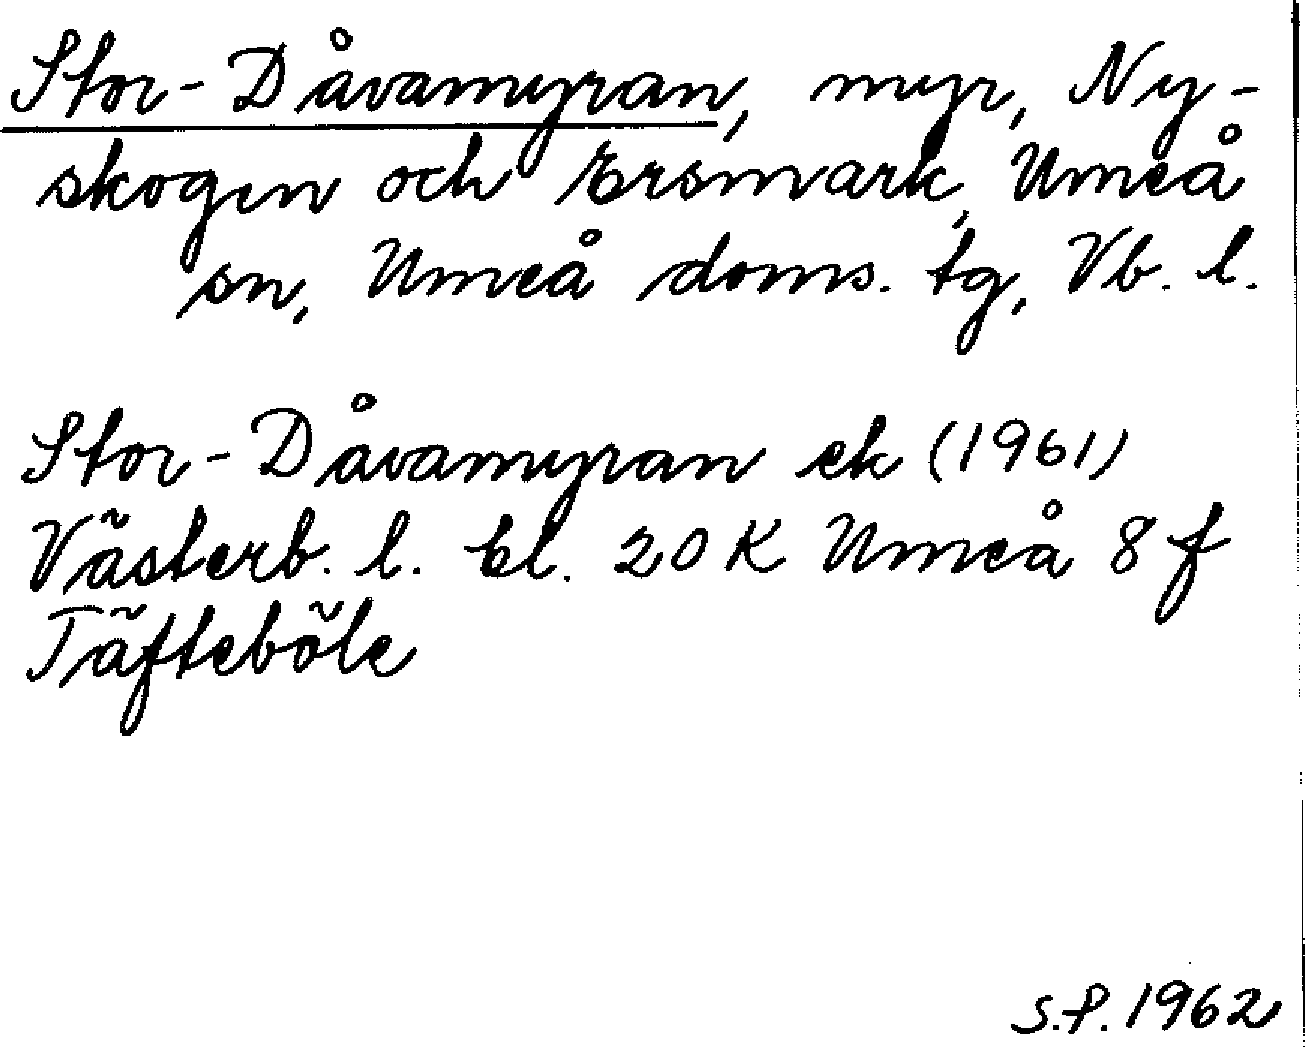 Stor-Dåvamyran, myr, Ny-
skogen och Ersmark, Umeå
sn, Umeå doms. tg, Vb. l.
Stor-Dåvamyran ek (1961)
Västerb. l. bl. 20 K Umeå 8 f
Täfteböle
S.P. 1962